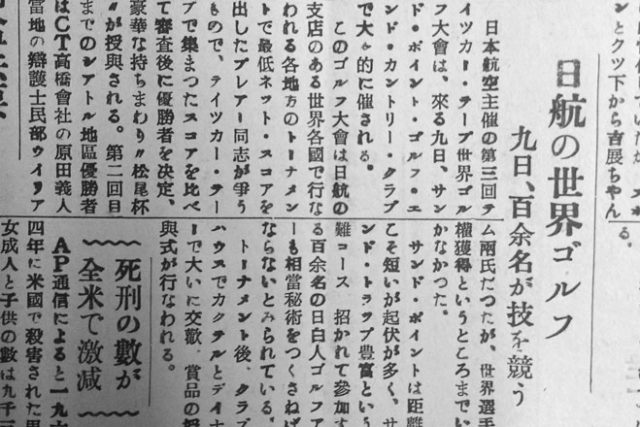 ンとクツ下から吉展ちゃん
る。
日航の世界ゴルフ
九日、百余名が技を競う
日本航空主催の第三回テ
イツカー・テープ世界ゴル
フ大會は、來る九日、サン
ド・ポイント・ゴルフ・エ
ンド・カントリー・クラブ
で大々的に催される。
このゴルフ大會は日航の
支店のある世界各國で行な
われる各地方のトーナメン
トで最低ネット・スコアを
出したプレアー同志が爭う
もので、テイツカー・テー
プで集まつたスコアを比べ
て審査後に優勝者を決定、
豪華な持ちまわり〃松尾杯
〃が授與される。第二回目
までのシアトル地區優勝者
はCT高橋會社の原田義人
當地の辯護士民部ウイリア
ム兩氏だつたが、世界選手
權獲得というところまでい
かなかつた。
サンド・ポイントは距離
こそ短いが起伏が多く、サ
ンド・トラップ豊富という
難コース 招かれて參加す
る百余名の日白人ゴルフア
ーも相當秘術をつくさねば
ならないとみられている。
トーナメント後、クラブ
ハウスでカクテルとデイナ
ーで大いに交歓、賞品の授
與式が行なわれる。
死刑の數が
全米で激減
AP通信によると一九六
四年に米國で殺害された男
女成人と子供の數は九千三